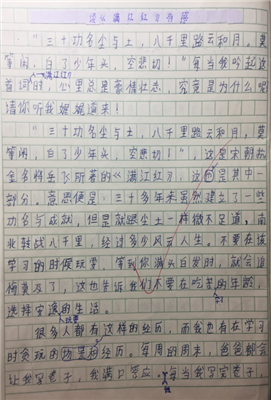 读《满江红》有感
“三十功名尘与土，八千里路云和月。莫
等闲，白了少年头，空悲切！”每当我吟起这
首词《满江红》时，心里总是豪情壮志，究竟是为什么呢
请你听我娓娓道来！
“三十功名尘与土，八千里路云和月。莫
等闲，白了少年头，空悲切！”，这是宋朝抗
金名将岳飞所著的《满江红》，这便是其中一
部分。意思便是：三十多年来虽然建立了一些
功名与成就，但是就跟尘土一样微不足道，南
北转战八千里，经过多少风云人生。不要在该
学习的时候玩耍，等到你满头白发时，就会追
悔莫及了，这也告诉我们不要在吃苦的年龄，
选择安逸的生活。
很多人都有这样的经历，而我也有在学习
时贪玩的经历。每周的周末，爸爸都会
让我写卷子，我满口答应。每当我写卷子，